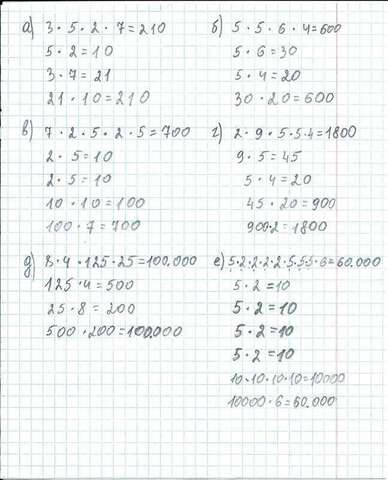 а) 3 · 5 · 2 · 7 = 210
5 · 2 = 10
3 · 7 = 21
21 · 10 = 210
б) 5 · 5 · 6 · 4 = 600
5 · 6 = 30
5 · 4 = 20
30 · 20 = 600
в) 7 · 2 · 5 · 2 · 5 = 700
2 · 5 = 10
2 · 5 = 10
10 · 10 = 100
100 · 7 = 700
г) 2 · 9 · 5 · 5 · 4 = 1800
9 · 5 = 45
5 · 4 = 20
45 · 20 = 900
900 · 2 = 1800
д) 8 · 4 · 125 · 25 = 100.000
125 · 4 = 500
25 · 8 = 200
500 · 200 = 100.000
е) 5 · 2 · 2 · 2 · 2 · 5 · 5 · 5 · 6 = 60.000
5 · 2 = 10
5 · 2 = 10
5 · 2 = 10
5 · 2 = 10
10 · 10 · 10 · 10 = 10000
10000 · 6 = 60.000